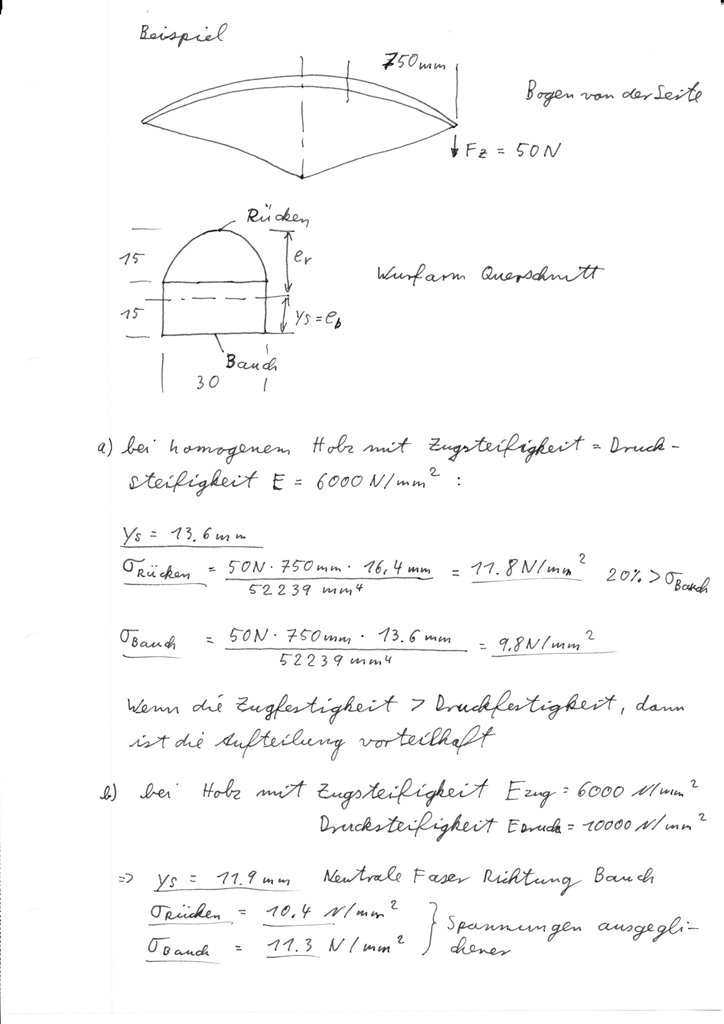 Beispiel
750mm
Bogen von der Seite
Fz = 50N
Rücken
er
15
Wurfarm Querschnitt
15
ys = eb
Bauch
30
a) bei homogenem Holz mit Zugsteifigkeit = Druck-
steifigkeit E = 6000 N/mm² :
ys = 13.6 mm
σRücken = 50N · 750mm · 16,4 mm / 52239 mm⁴ = 11.8 N/mm² 20% > σBauch
σBauch = 50N · 750mm · 13.6 mm / 52239 mm⁴ = 9.8 N/mm²
Wenn die Zugfestigkeit > Druckfestigkeit, dann
ist die Aufteilung vorteilhaft
b) bei Holz mit Zugsteifigkeit Ezug = 6000 N/mm²
Drucksteifigkeit EDruck = 10000 N/mm²
=> ys = 11.9 mm Neutrale Faser Richtung Bauch
σRücken = 10.4 N/mm² } Spannungen ausgegli-
σBauch = 11.3 N/mm² chener